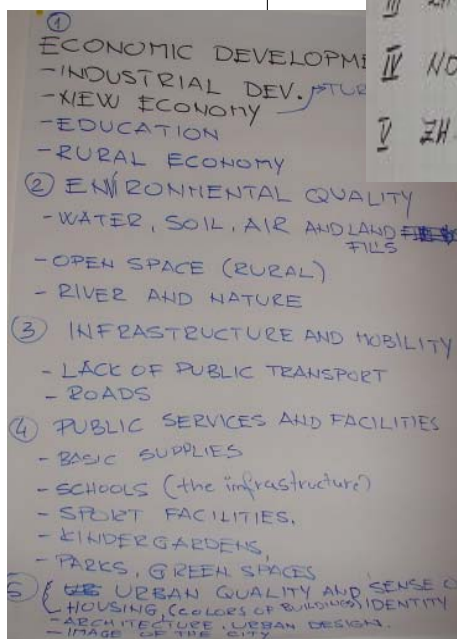 ①
ECONOMIC DEVELOPME
- INDUSTRIAL DEV.
- NEW ECONOMY
- EDUCATION
- RURAL ECONOMY
② ENVIRONMENTAL QUALITY
- WATER, SOIL, AIR AND LAND
FILLS
- OPEN SPACE (RURAL)
- RIVER AND NATURE
③ INFRASTRUCTURE AND MOBILITY
- LACK OF PUBLIC TRANSPORT
- ROADS
④ PUBLIC SERVICES AND FACILITIES
- BASIC SUPPLIES
- SCHOOLS (the infrastructure)
- SPORT FACILITIES,
- KINDERGARDENS,
- PARKS, GREEN SPACES
⑤ URBAN QUALITY AND SENSE O
HOUSING, (COLORS OF BUILDINGS) IDENTITY
- ARCHITECTURE, URBAN DESIGN.
- IMAGE OF THE CITY
III
IV NO
V ZH